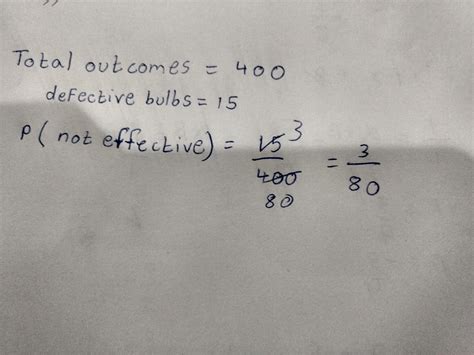 Total outcomes = 400
defective bulbs = 15
P ( not effective) = 15 3 / 400 80 = 3 / 80